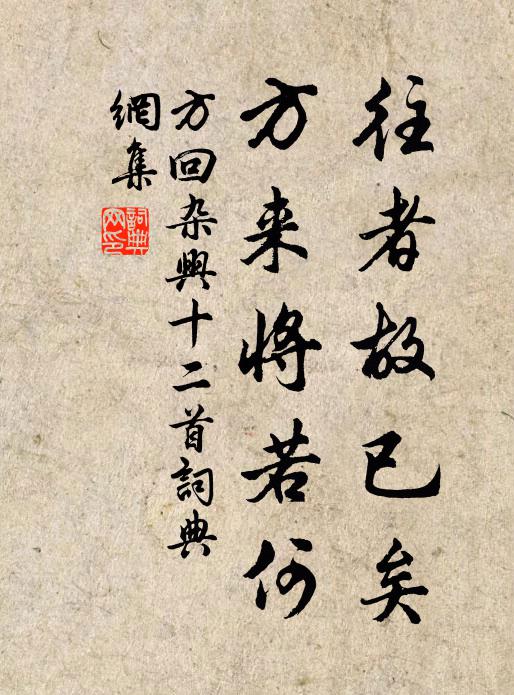 往者故已矣
方来將若何
方回杂興十二首詞典
網集
詞典網印